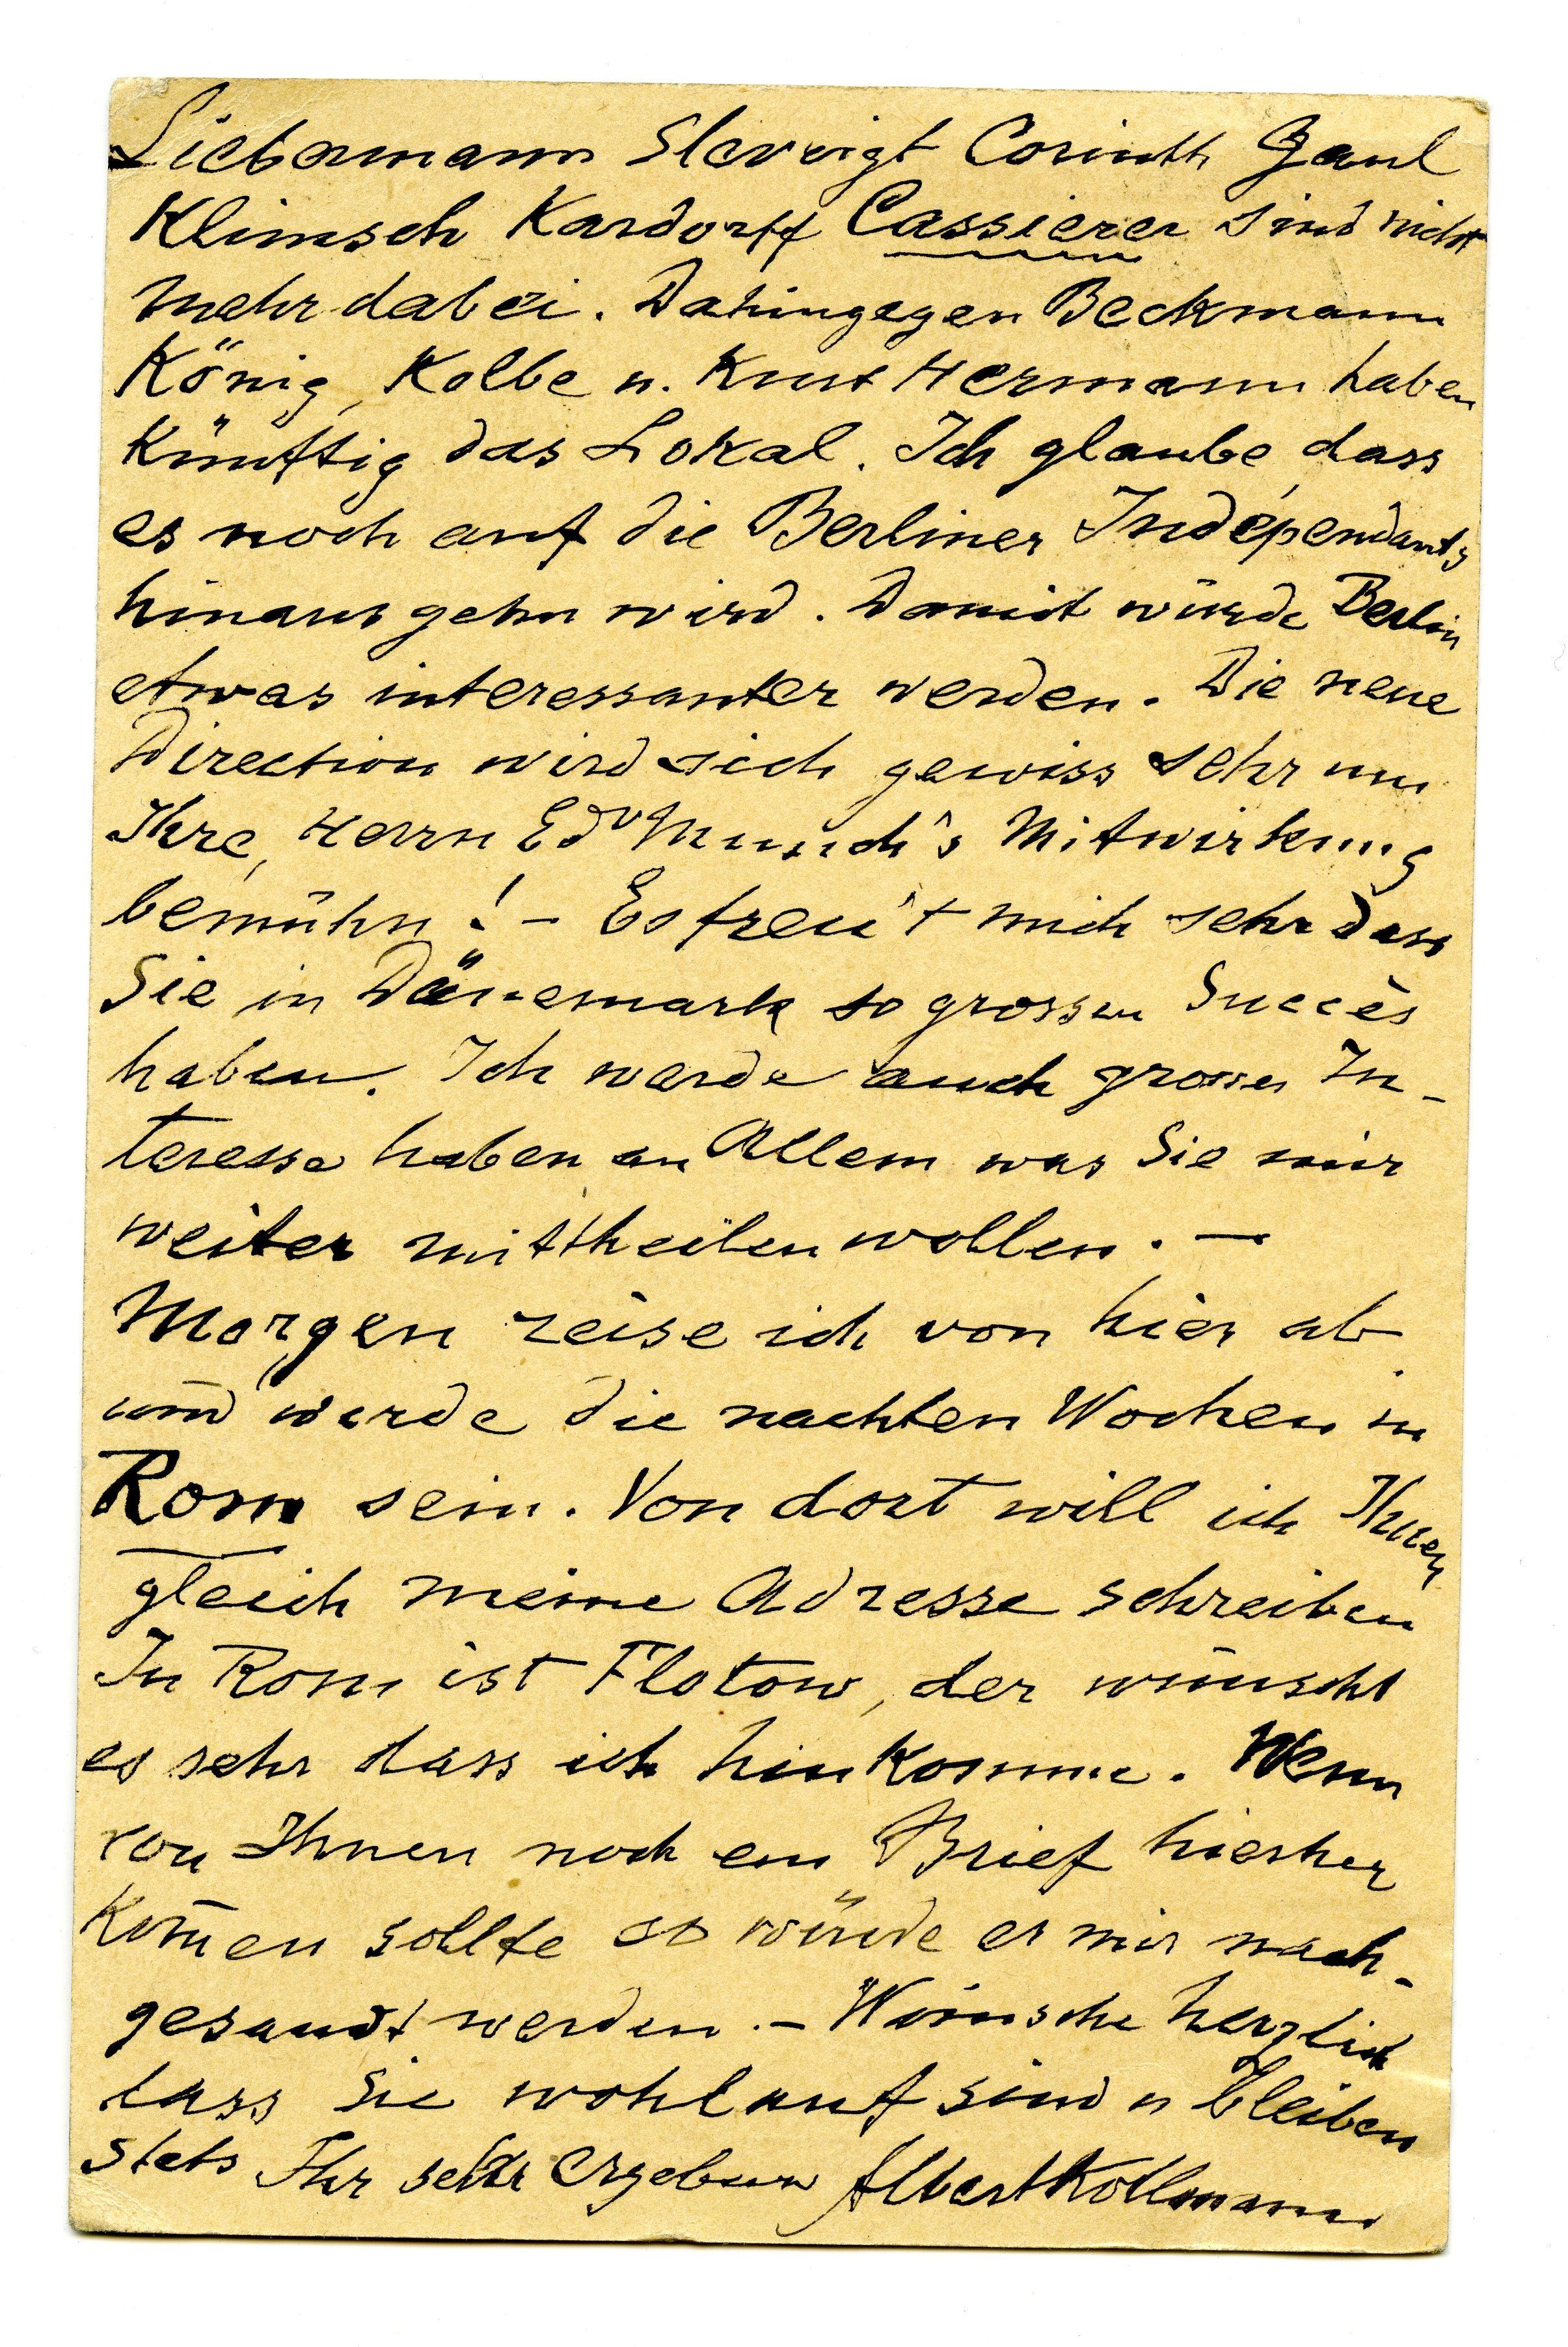 Liebermann Slevigt Corinth Gaul
Klimsch Kardorff Cassierer sind nicht
mehr dabei. Dahingegen Beckmann
König, Kolbe u. Kurt Hermann haben
Künftig das Lokal. Ich glaube, dass
es noch auf die Berliner Indépendants
hinaus gehn wird. Damit würde Berlin
etwas interessanter werden. Die neue
Direction wird sich gewiss sehr um
Ihre, Herrn Edv Munch's Mitwirkung
bemühn! – Es freu't mich sehr dass
Sie in Dänemark so grossen Succès
haben. Ich werde auch grosses In-
teresse haben an Allem was Sie mir
weiter mittheilen wollen. –
Morgen reise ich von hier ab
und werde die nachten Wochen in
Rom sein. Von dort will ich Ihnen
gleich meine Adresse schreiben
In Rom ist Flotow, der wünscht
es sehr dass ich hinkomme. Wenn
von Ihnen noch ein Brief hierher
kom̄en sollte so würde er mir nach-
gesandt werden. – Wünsche herzlich
dass Sie wohlauf sind u bleiben
Stets Ihr sehr ergebener Albert Kollmann